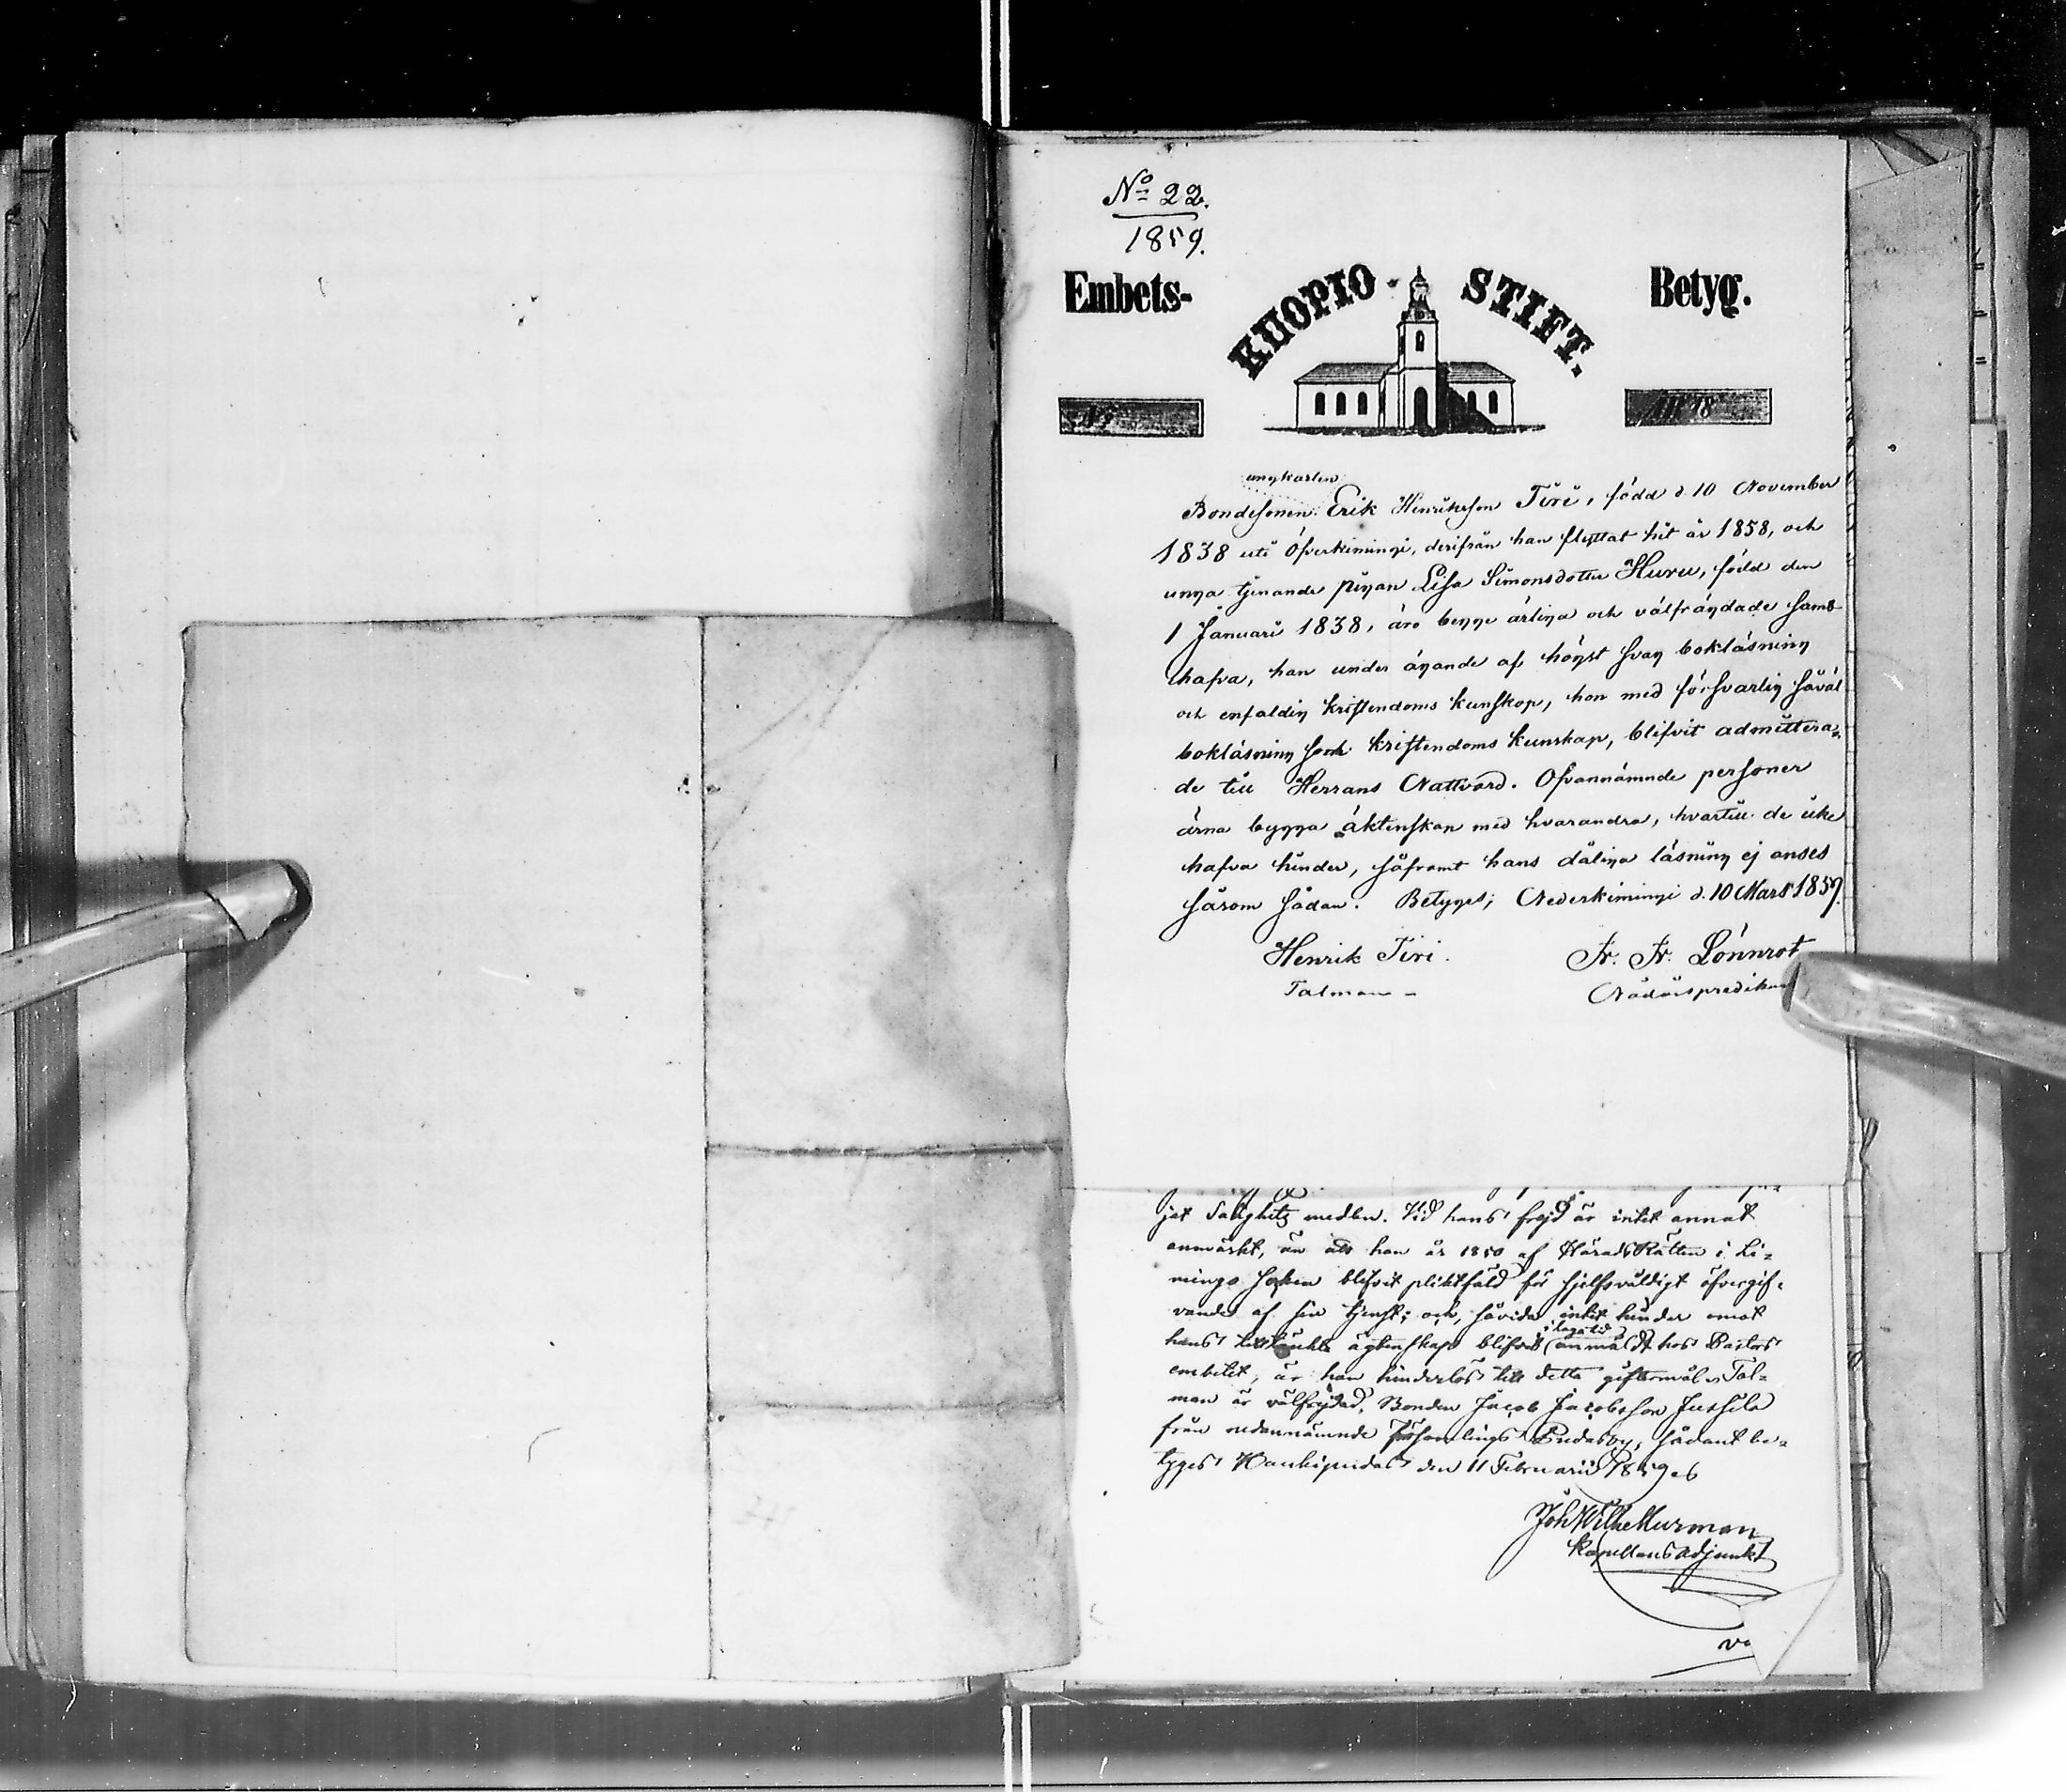 No 22.
1859.
Embets- KUOPIO STIFT. Betyg.
No
År 18
ungkarlen
Bondesonen Erik Henriksson Tiri, född d 10 November
1838 uti Öfverkiimingi, derifrån han flyttat hit år 1858, och
unga tjenande pigan Lisa Simonsdotter Huru, född den
1 Januari 1838, äro begge ärliga och välfrägdade samt
hafva, han under ägande af högst svag bokläsning
och enfaldig kristendoms kunskap, hon med försvarlig såväl
bokläsning som kristendoms kunskap, blifvit admittera-
de till Herrans Nattvard. Ofvannämnde personer
ärna bygga äktenskap med hvarandra, hvartill de icke
hafva hinder, såframt hans dåliga läsning ej anses
såsom sådan. Betygas; Nederkiimingi d. 10 Mars 1859.
Henrik Tiri.
Talman
Fr. Fr. Lönnrot
Nådårspredikant
jat Salighets medlen. Vid hans frejd är intet annat
anmärkt, än att han år 1850 af HäradsRätten i Li-
mingo Socken blifvit pliktfäld för sjelfsvåldigt öfvergif-
vande af sin tjenst; och, såvida intet hinder emot
i laga tid
hans tilltänkta ägtenskap blifvit anmäldt hos Pastors
embetet, är han hinderlös till detta giftermål. Tal-
man är välfrejdad, Bonden Jacob Jacobsson Jussila
från nedannämnde församlings Pudasby, sådant be-
tygas Haukipudas den 11 Februarii 1859
Joh Wilh Murman
Kapellans adjunkt